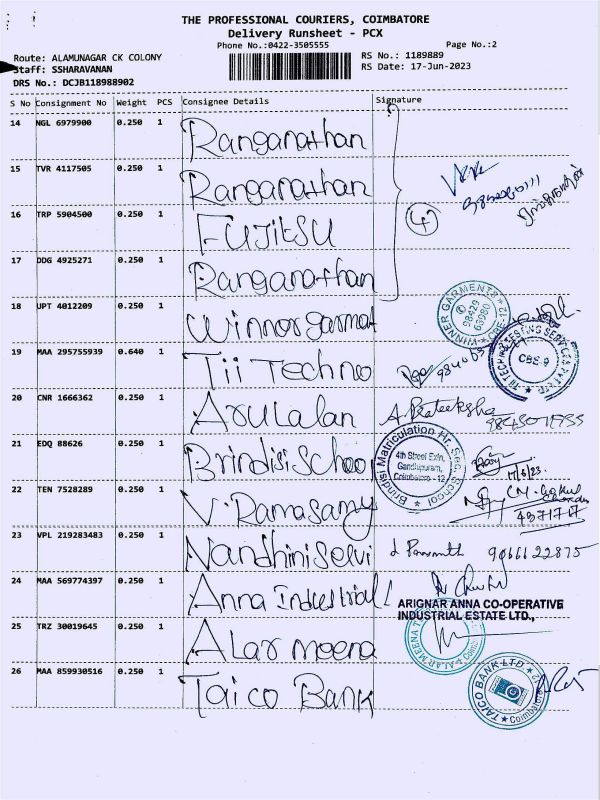 THE PROFESSIONAL COURIERS, COIMBATORE
Delivery Runsheet - PCX
Phone No.:0422-3505555
Page No.:2
Route: ALAMUNAGAR CK COLONY
RS No.: 1189889
Staff: SSHARAVANAN
RS Date: 17-Jun-2023
DRS No.: DCJB118988902
S No Consignment No Weight PCS Consignee Details Signature
14 NGL 6979900 0.250 1 Ranganathan
15 TVR 4117505 0.250 1 Ranganathan
16 TRP 5904500 0.250 1 FUJitSU
17 DDG 4925271 0.250 1 Ranganathan
4
18 UPT 4012209 0.250 1 winnor garmat
WINNER GARMENTS CBE-12
98429
63980
19 MAA 295755939 0.640 1 Tii Techno
TII TECHNO TESTING SERVICES PVT LTD
CBE-9
20 CNR 1666362 0.250 1 Arulalan A. Prateeksha
21 EDQ 88626 0.250 1 Brindisi School
Brindisi Matriculation Hr. Sec. School
4th Street Extn,
Gandhipuram,
Coimbatore - 12
17/6/23
22 TEN 7528289 0.250 1 V. Ramasamy
23 VPL 219283483 0.250 1 Nandhini Selvi 9066622875
24 MAA 569774397 0.250 1 Anna Industrial
ARIGNAR ANNA CO-OPERATIVE
INDUSTRIAL ESTATE LTD.,
25 TRZ 30019645 0.250 1 Alar meena
ALAR MEENA
26 MAA 859930516 0.250 1 Taico Bank
TAICO BANK LTD.
Coimbatore